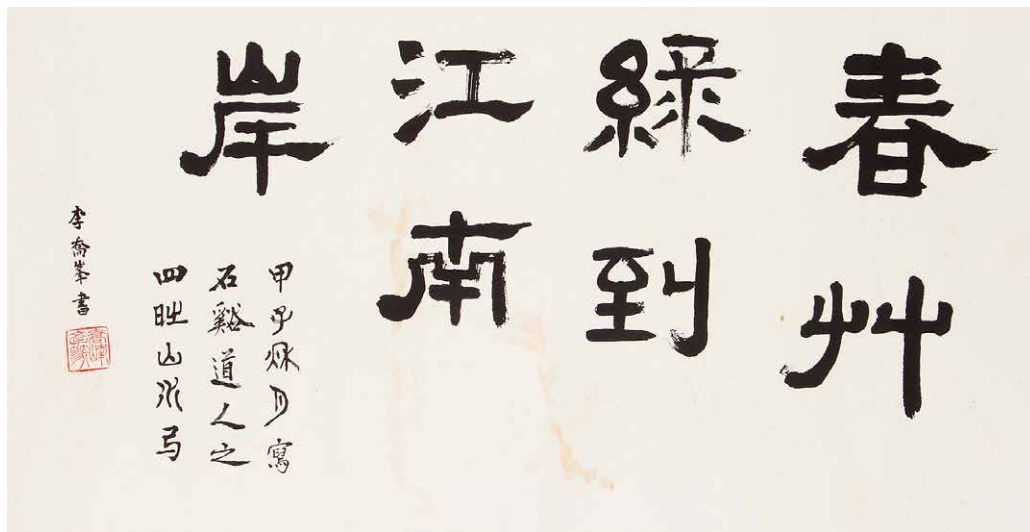 春艸
綠到
江南
岸
甲子秌月寫
石谿道人之
四時山水句
李喬峯書